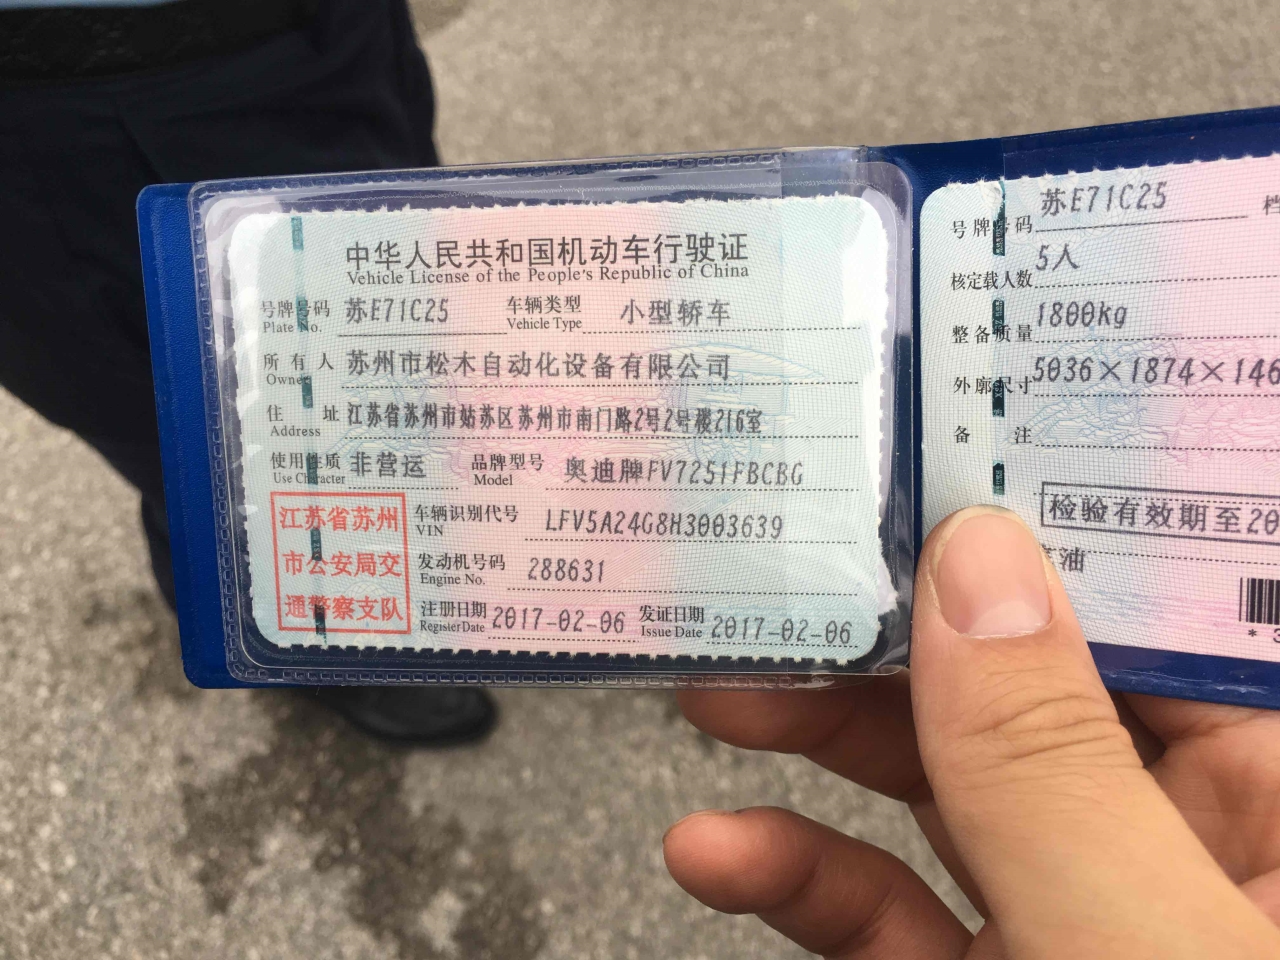 中华人民共和国机动车行驶证
Vehicle License of the People's Republic of China
号牌号码 苏E71C25 车辆类型 小型轿车
Plate No. Vehicle Type
所有人 苏州市松木自动化设备有限公司
Owner
住址 江苏省苏州市姑苏区苏州市南门路2号2号楼216室
Address
使用性质 非营运 品牌型号 奥迪牌FV7251FBCBG
Use Character Model
江苏省苏州
市公安局交
通警察支队
车辆识别代号 LFV5A24G8H3003639
VIN
发动机号码 288631
Engine No.
注册日期 2017-02-06 发证日期 2017-02-06
Register Date Issue Date
号牌号码 苏E71C25 档
核定载人数 5人
整备质量 1800kg
外廓尺寸 5036×1874×146
备注
检验有效期至20
油
* 3